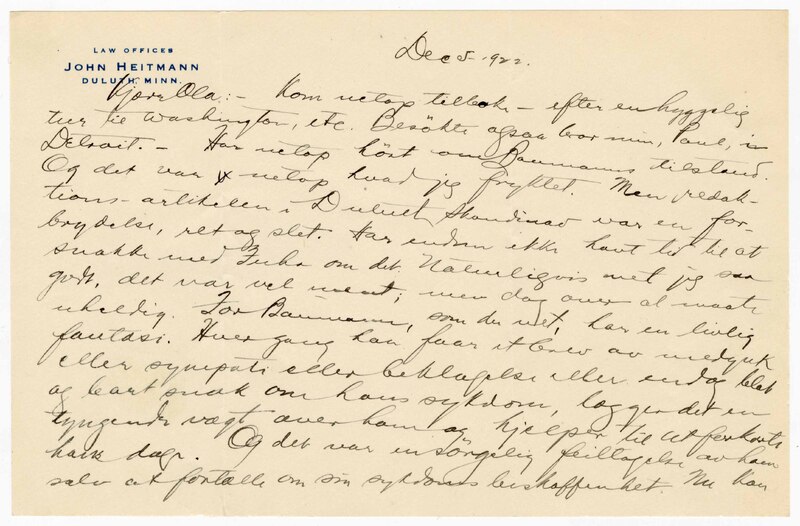 LAW OFFICES
JOHN HEITMANN
DULUTH, MINN.
Dec 5 - 1922.
Kjære Ola: - Kom netop tilbake - efter en hyggelig
tur til Washington, etc. Besökte ogsaa bror min, Paul, i
Detroit. - Har netop hört om Baumanns tilstand.
Og det var netop hvad jeg fryktet. Men redak-
tions-artikelen i Duluth Skandinav var en for-
brydelse, ret og slet. Har endnu ikke havt tid til at
snakke med Fuhr om det. Naturligvis vet jeg saa
godt, det var vel ment; men dog over al maate
uheldig. For Baumann, som du vet, har en livlig
fantasi. Hver gang han faar et brev av medynk
eller sympati eller beklagelse eller endog blot
og bart snak om hans sykdom, lægger det en
tyngende vægt over ham og hjelper til at forkorte
hans dage. Og det var en sörgelig feiltagelse av ham
selv at fortælle om sin sykdoms beskaffenhet. Nu kan